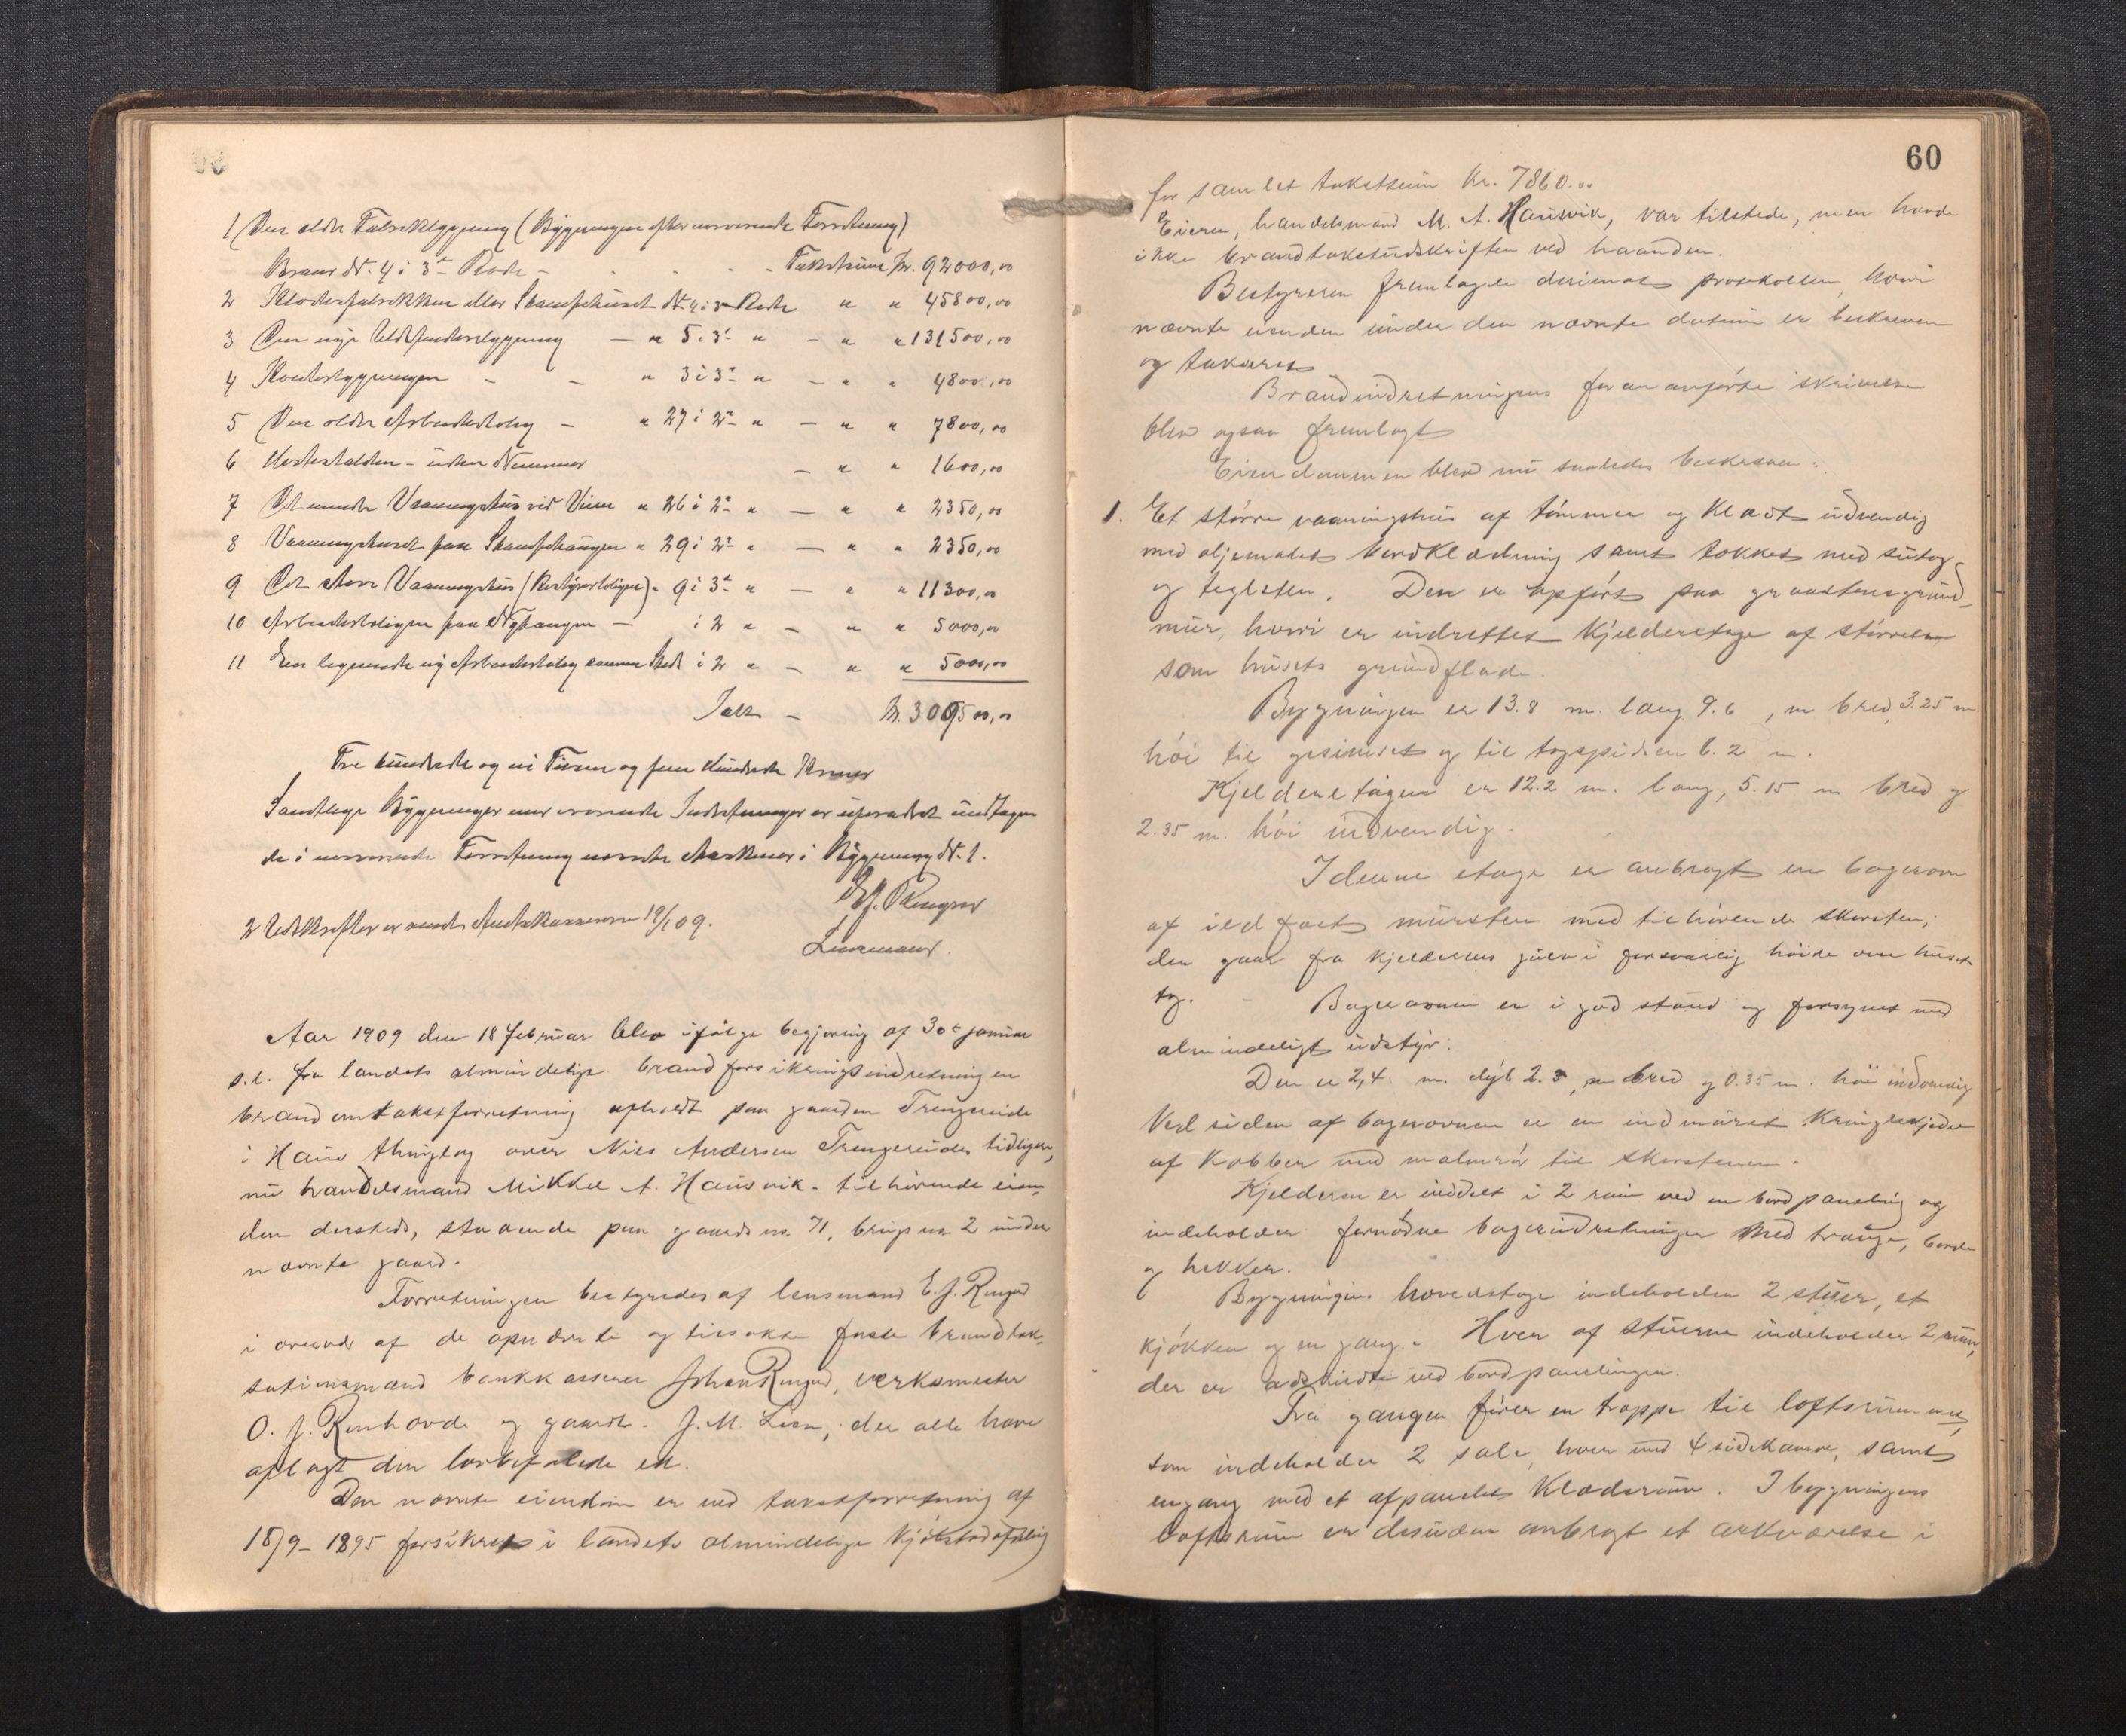 1 Den ældre Fabrikbygning (Bygningen efter nærværende Forretning)
Brand Nr. 4 i 3die Rode - Takstsum Kr. 92000,00
2 Klædesfabrikken eller Stampehuset Nr. 4 i 3die Rode " " 45800,00
3 Den nye Uldspinderibygning — " 5 i 3die " — " " 131500,00
4 Kontorbygningen - - " 3 i 3die " — " " 4800,00
5 Den ældre Arbeiderbolig — " 27 i 2den " — " " 7800,00
6 Hestestalden - uden Nummer — " " 1600,00
7 Det mindre Vaaningshus ved Veien " 26 i 2den " — " " 2350,00
8 Vaaningshuset paa Stampehaugen " 29 i 2den " — " " 2350,00
9 Det store Vaaningshus (Bestyrerboligen) " 9 i 3die " — " " 11300,00
10 Arbeiderboligen paa Nyhaugen — i 2 " — " " 5000,00
11 En lignende ny Arbeiderbolig samme Sted i 2 " — " " 5000,00
Ialt — Kr. 309500,00
Tre hundrede og ni Tusen og fem Hundrede Kroner
Samtlige Bygninger med værende Indretninger er uforandret undtagen
de i nærværende Forretning nævnte Maskiner i Bygning Nr. 1.
E. J. Ringdal
Lensmand.
2 Udskrifter er sendt Amtskassereren 19/1 09.
Aar 1909 den 18 februar blev ifølge begjæring af 30te januar
s. l. fra landets almindelige brandforsikringsindretning en
brandomtakstforretning afholdt paa gaarden Trengereide
i Haus thinglag over Nils Andersen Trengereides tidligere,
nu handelsmand Mikkel A. Hausvik tilhørende eien-
dom dersteds, staaende paa gaards no. 71, brugs no 2 under
nævnte gaard.
Forretningen bestyredes af lensmand E. J. Ringdal
i overvær af de opnævnte og tilsakte faste brandtak-
stationsmænd bankkasserer Johan Ringdal, verksmester
O. J. Runhovde og gaardb. J. M. Lien, der alle have
aflagt den lovbefalede ed.
Den nævnte eiendom er ved takstforretning af
18/9 - 1895 forsikret i landets almindelige kjøbstadafdeling
60
for samlet takstsum Kr. 7860.00
Eieren, handelsmand M. A. Hausvik, var tilstede, men havde
ikke brandtakstudskriften ved haanden.
Bestyreren fremlagde derimot protokollen, hvori
nævnte eiendom under den nævnte datum er beskreven
og takseret
Brandindretningens foran anførte skrivelse
blev ogsaa fremlagt
Eiendommen blev nu saaledes beskreven:
1. Et større vaaningshus af tømmer og klædt udvendig
med oljemalet bordklædning samt tækket med sutag
og teglsten. Den er opført paa graastensgrund-
mur, hvori er indrettet kjælderetage af størrelse
som husets grundflade.
Bygningen er 13.8 m. lang 9.6, m bred, 3.25 m.
høi til gesimset og til tagspidsen 6.2 m.
Kjelderetagen er 12.2 m. lang, 5.15 m bred og
2.35 m. høi indvendig.
I denne etage er anbragt en bagerovn
af ildfast mursten med tilhørende skorsten,
der gaar fra kjælderens gulv i forsvarlig høide over husets
tag. Bagerovnen er i god stand og forsynet med
almindeligt udstyr.
Den er 2,4 m. dyb 2.5 m bred og 0.35 m. høi indvendig
Ved siden af bagerovnen er en indmuret kringlekjedel
af kobber med malmrør til skorstenen.
Kjelderen er inddelt i 2 rum ved en bordpaneling og
indeholder fornødne bagerindretninger med trauge, borde
og hekker.
Bygningens hovedetage indeholder 2 stuer, et
kjøkken og en gang. Hver af stuerne indeholder 2 rum,
der er adskildte ved bordpanelinger.
Fra gangen fører en trappe til loftsrummet,
som indeholder 2 sale, hver med 4 sidekamre, samt
en gang med et afpanelet klæderum. I bygningens
loftsrum er desuden anbragt et arkværelse i